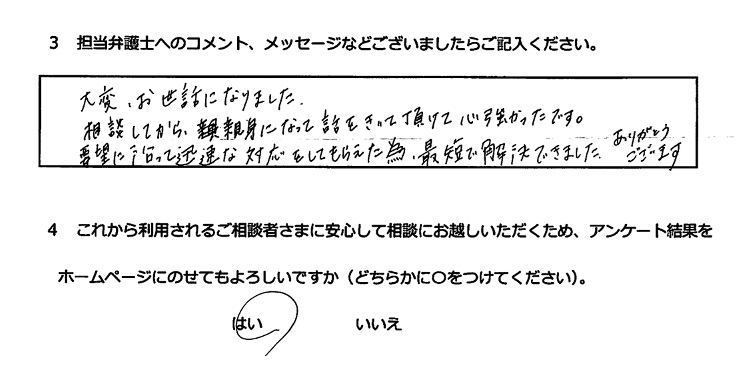 3 担当弁護士へのコメント、メッセージなどございましたらご記入ください。
大変、お世話になりました。
相談してから、親身になって話をきいて頂けて心強かったです。
要望に沿って迅速な対応をしてもらえた為、最短で解決できました。ありがとう
ございます
4 これから利用されるご相談者さまに安心して相談にお越しいただくため、アンケート結果を
ホームページにのせてもよろしいですか（どちらかに〇をつけてください）。
はい いいえ